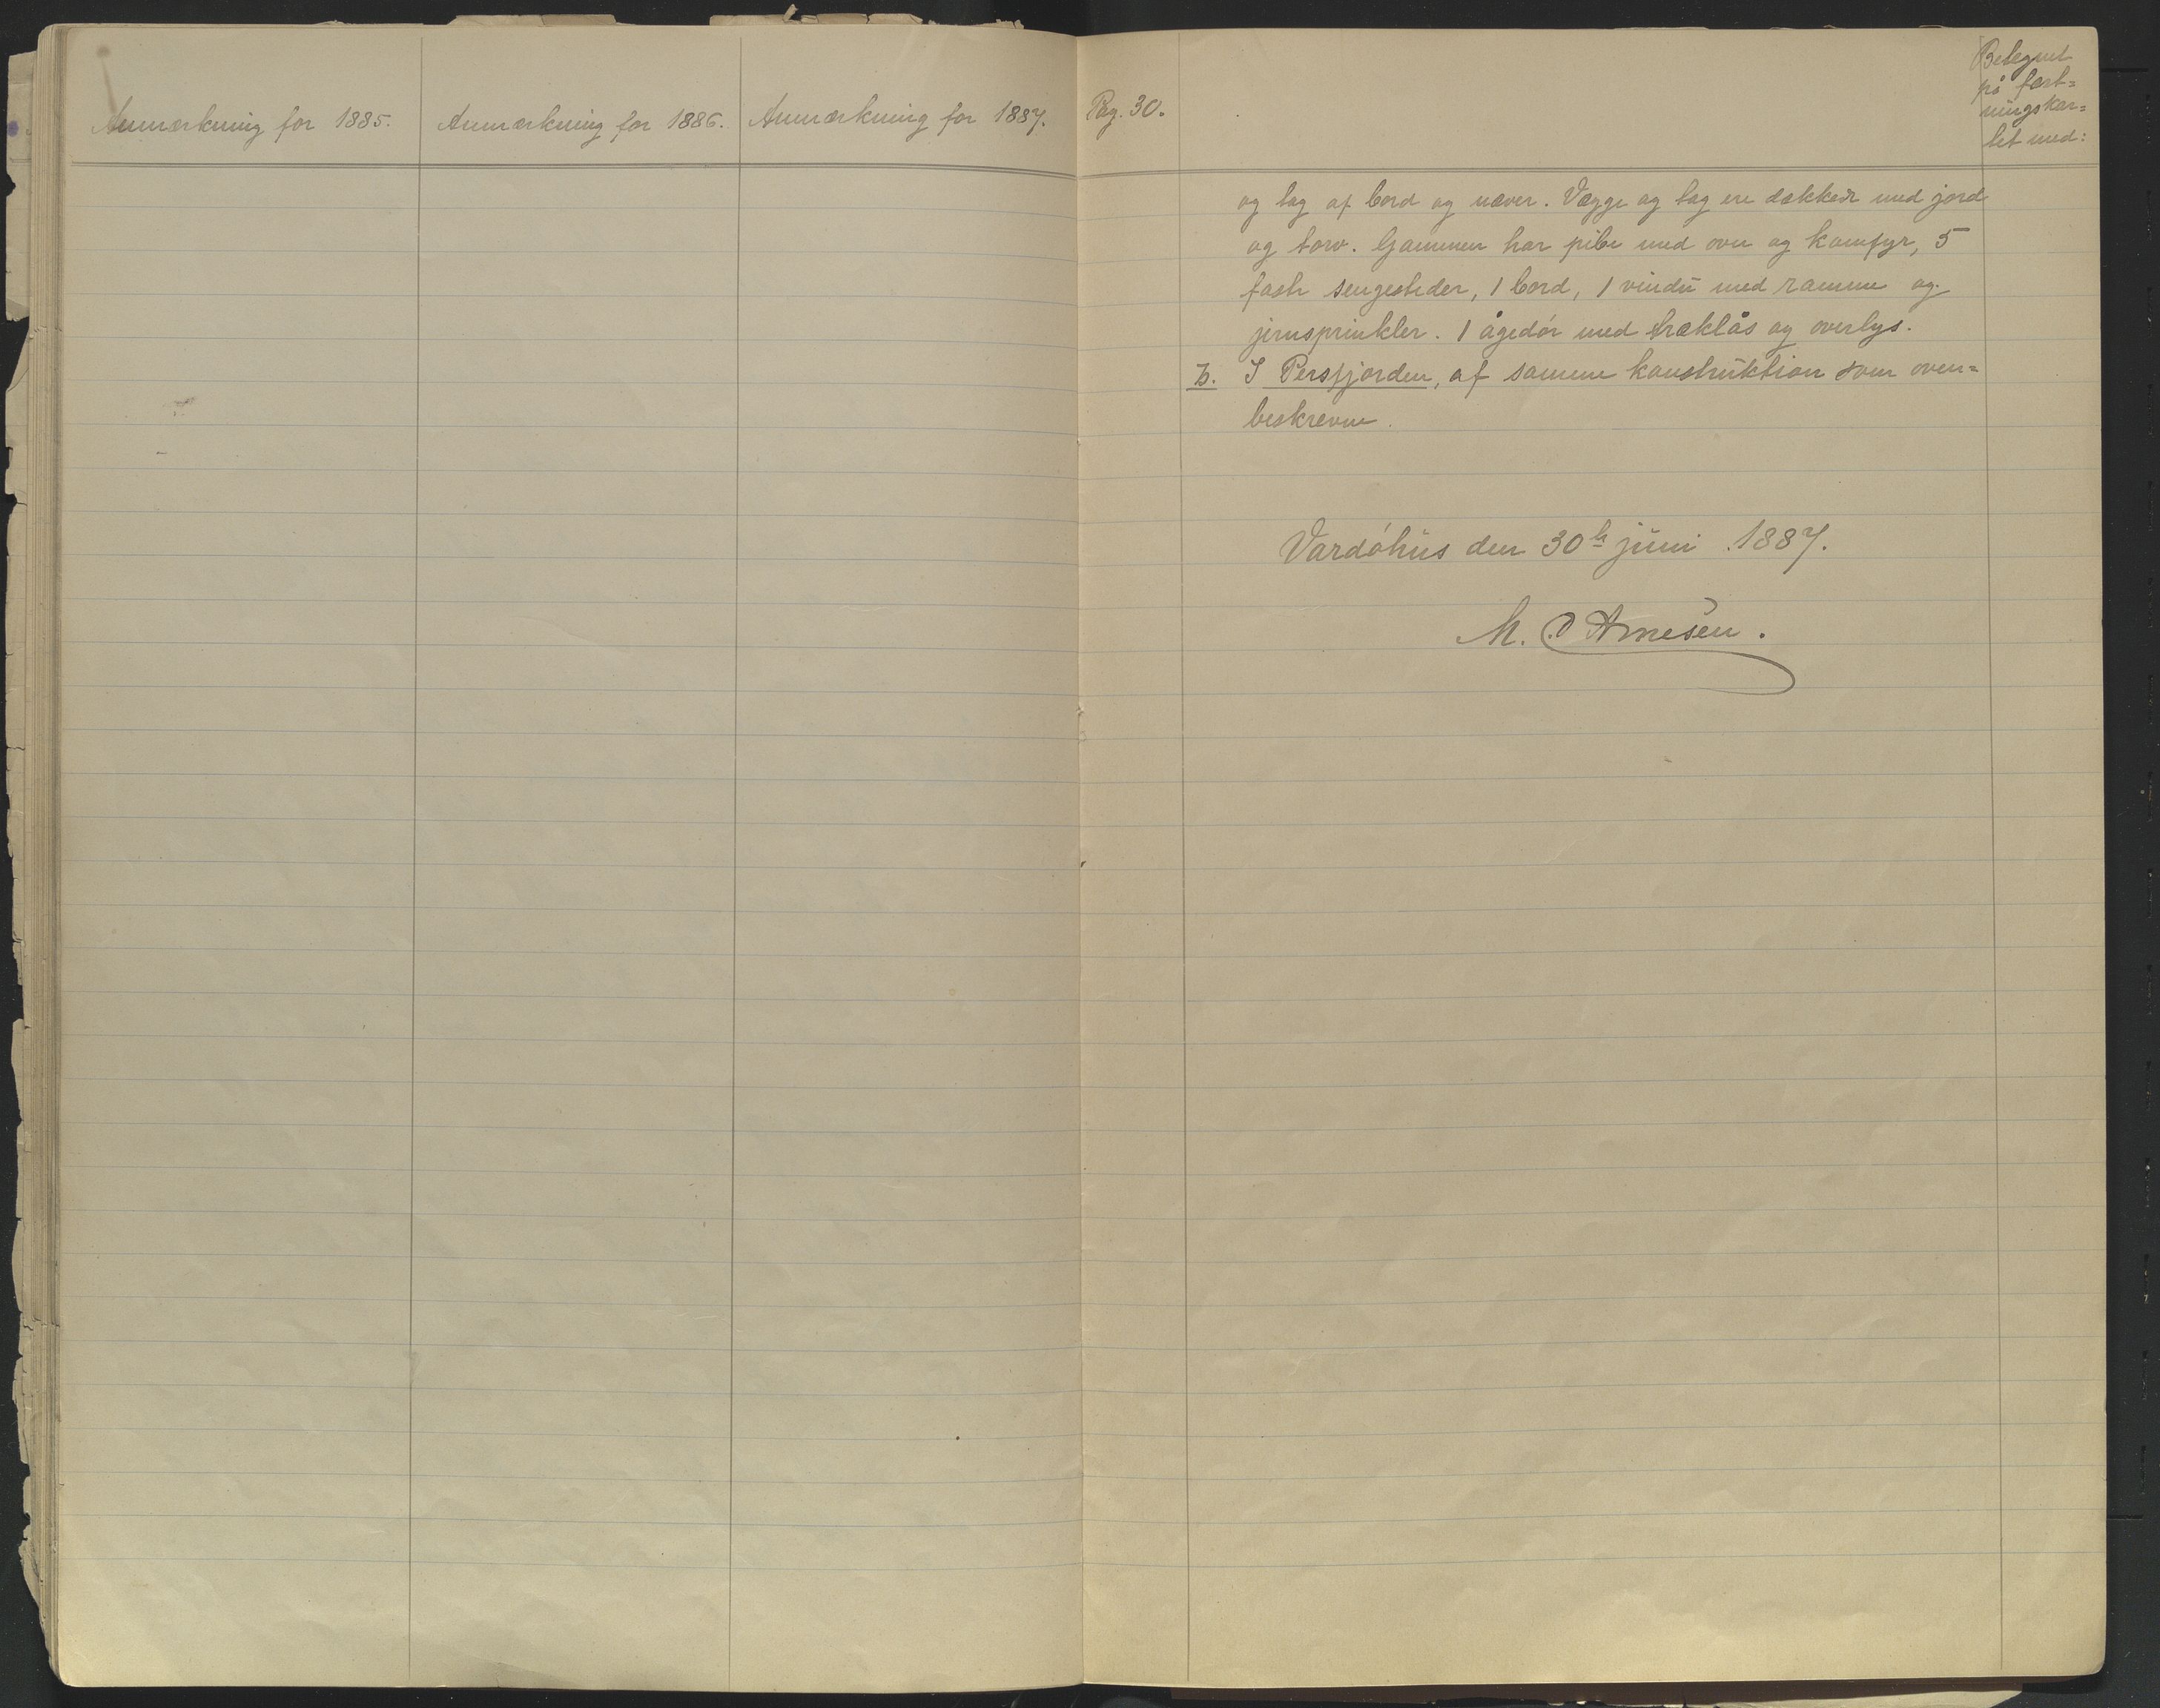 Anmærkning for 1885.
Anmærkning for 1886.
Anmærkning for 1887.
Pag. 30.
Betegnet
på fæst=
ningskar=
tet med:
og tag af bord og næver. Vægge og tag ere dækkede med jord
og torv. Gammen har pibe med ovn og komfyr, 5
faste sengesteder, 1 bord, 1 vindu med ramme og
jernsprinkler. 1 ågedör med træklås og overlys.
b. I Persfjorden, af samme konstruktion som oven=
beskrevne.
Vardöhus den 30te juni 1887.
M. Arnesen.